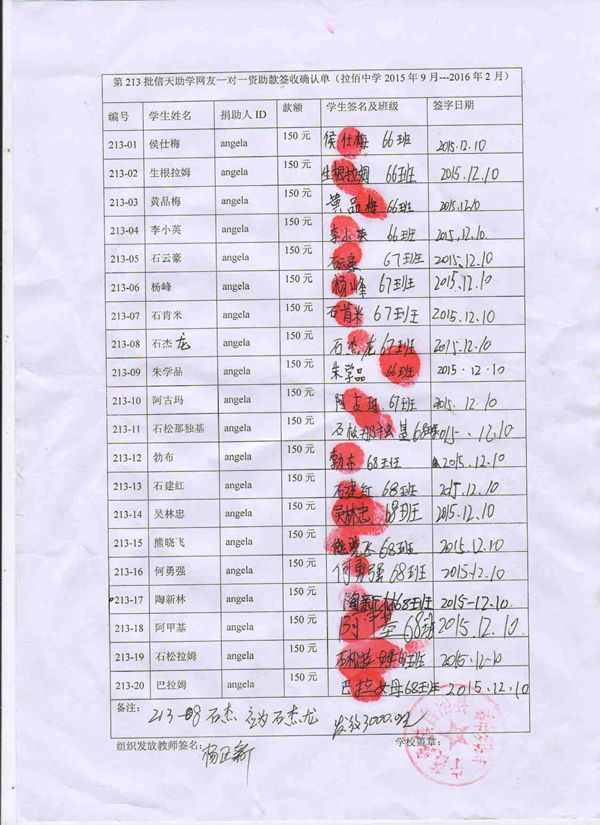 第213批信天助学网友一对一资助款签收确认单（拉佰中学2015年9月---2016年2月）
编号 学生姓名 捐助人ID 款额 学生签名及班级 签字日期
213-01 侯仕梅 angela 150元 侯仕梅 66班 2015.12.10
213-02 生根拉姆 angela 150元 生根拉姆 66班 2015.12.10
213-03 黄品梅 angela 150元 黄品梅 66班 2015.12.10
213-04 李小英 angela 150元 李小英 66班 2015.12.10
213-05 石云豪 angela 150元 石云豪 67班 2015.12.10
213-06 杨峰 angela 150元 杨峰 67班 2015.12.10
213-07 石肯米 angela 150元 石肯米 67班 2015.12.10
213-08 石杰龙 angela 150元 石杰龙 67班 2015.12.10
213-09 朱学品 angela 150元 朱学品 66班 2015.12.10
213-10 阿古玛 angela 150元 阿古玛 67班 2015.12.10
213-11 石松那独基 angela 150元 68班 2015.12.10
213-12 勃布 angela 150元 勃布 68班 2015.12.10
213-13 石建红 angela 150元 石建红 68班 2015.12.10
213-14 吴林忠 angela 150元 吴林忠 68班 2015.12.10
213-15 熊晓飞 angela 150元 熊晓飞 68班 2015.12.10
213-16 何勇强 angela 150元 何勇强 68班 2015.12.10
213-17 陶新林 angela 150元 陶新林 68班 2015-12-10
213-18 阿甲基 angela 150元 68班 2015.12.10
213-19 石松拉姆 angela 150元 2015.12.10
213-20 巴拉姆 angela 150元 巴拉母 68班 2015.12.10
备注： 213-08 石杰 应为石杰龙 发放3000.00元
组织发放教师签名： 杨正新 学校盖章：